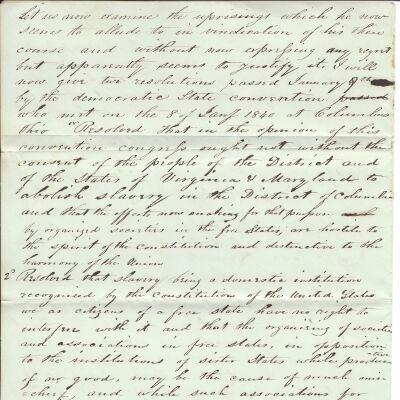 Let us now examine the uprisings which he now
seems to allude to in vindication of his then
course and without now expressing any regret
but apparently seems to justify it. I will
now give two resolutions passed January 8th
by the democratic State convention passed
who met on the 8 of Jany 1840 at Columbus
Ohio "Resolved That in the opinion of this
convention congress ought not without the
consent of the people of the District and
of the States of Virginia & Maryland to
abolish slavery in the District of Columbia
and that the efforts now making for that purpose
by organized societies in the free States, are hostile to
the spirit of the constitution and destructive to the
harmony of the Union
2d Resolved that slavery being a domestic institution
recognised by the Constitution of the United States
we as citizens of a free state have no right to
interfere with it and that the organizing of societies
and associations in free states, in opposition
to the institutions of sister States while productive
of no good, may be the cause of much mis-
chief, and while such associations for